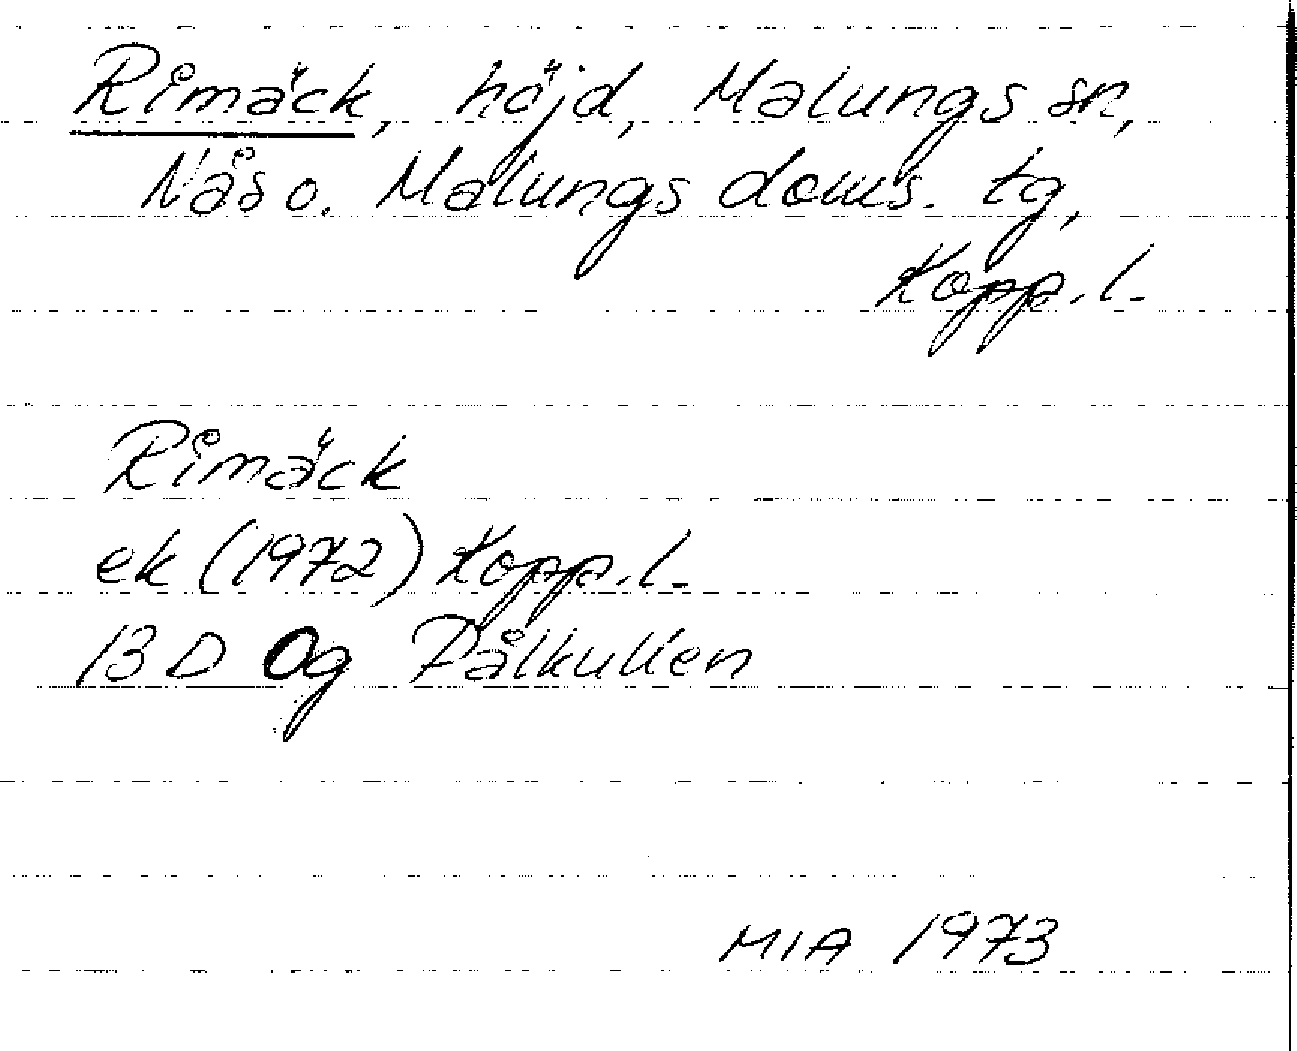 Rimäck, höjd, Malungs sn,
Nås o. Malungs doms. tg,
Kopp. l.
Rimäck
ek (1972) Kopp. l.
13 D 0g Pålkullen
MIA 1973